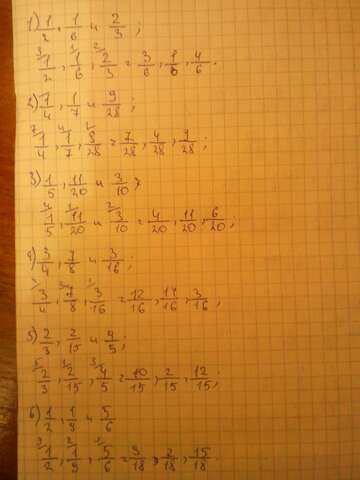 1) 1/2, 1/6 и 2/3;
3/ 1/2, 1/ 1/6, 2/ 2/3 = 3/6, 1/6, 4/6.
2) 1/4, 1/7 и 9/28
7/ 1/4, 4/ 1/7, 1/ 9/28 = 7/28, 4/28, 9/28;
3) 1/5, 11/20 и 3/10
4/ 1/5, 1/ 11/20 и 2/ 3/10 = 4/20, 11/20, 6/20;
4) 3/4, 7/8 и 3/16
3/4, 7/8, 1/ 3/16 = 12/16, 14/16, 3/16;
5) 2/3, 2/15 и 4/5;
5/ 2/3, 1/ 2/15, 3/ 4/5 = 10/15, 2/15, 12/15;
6) 1/2, 1/9 и 5/6
1/2, 2/ 1/9, 5/6 = 9/18, 2/18, 15/18